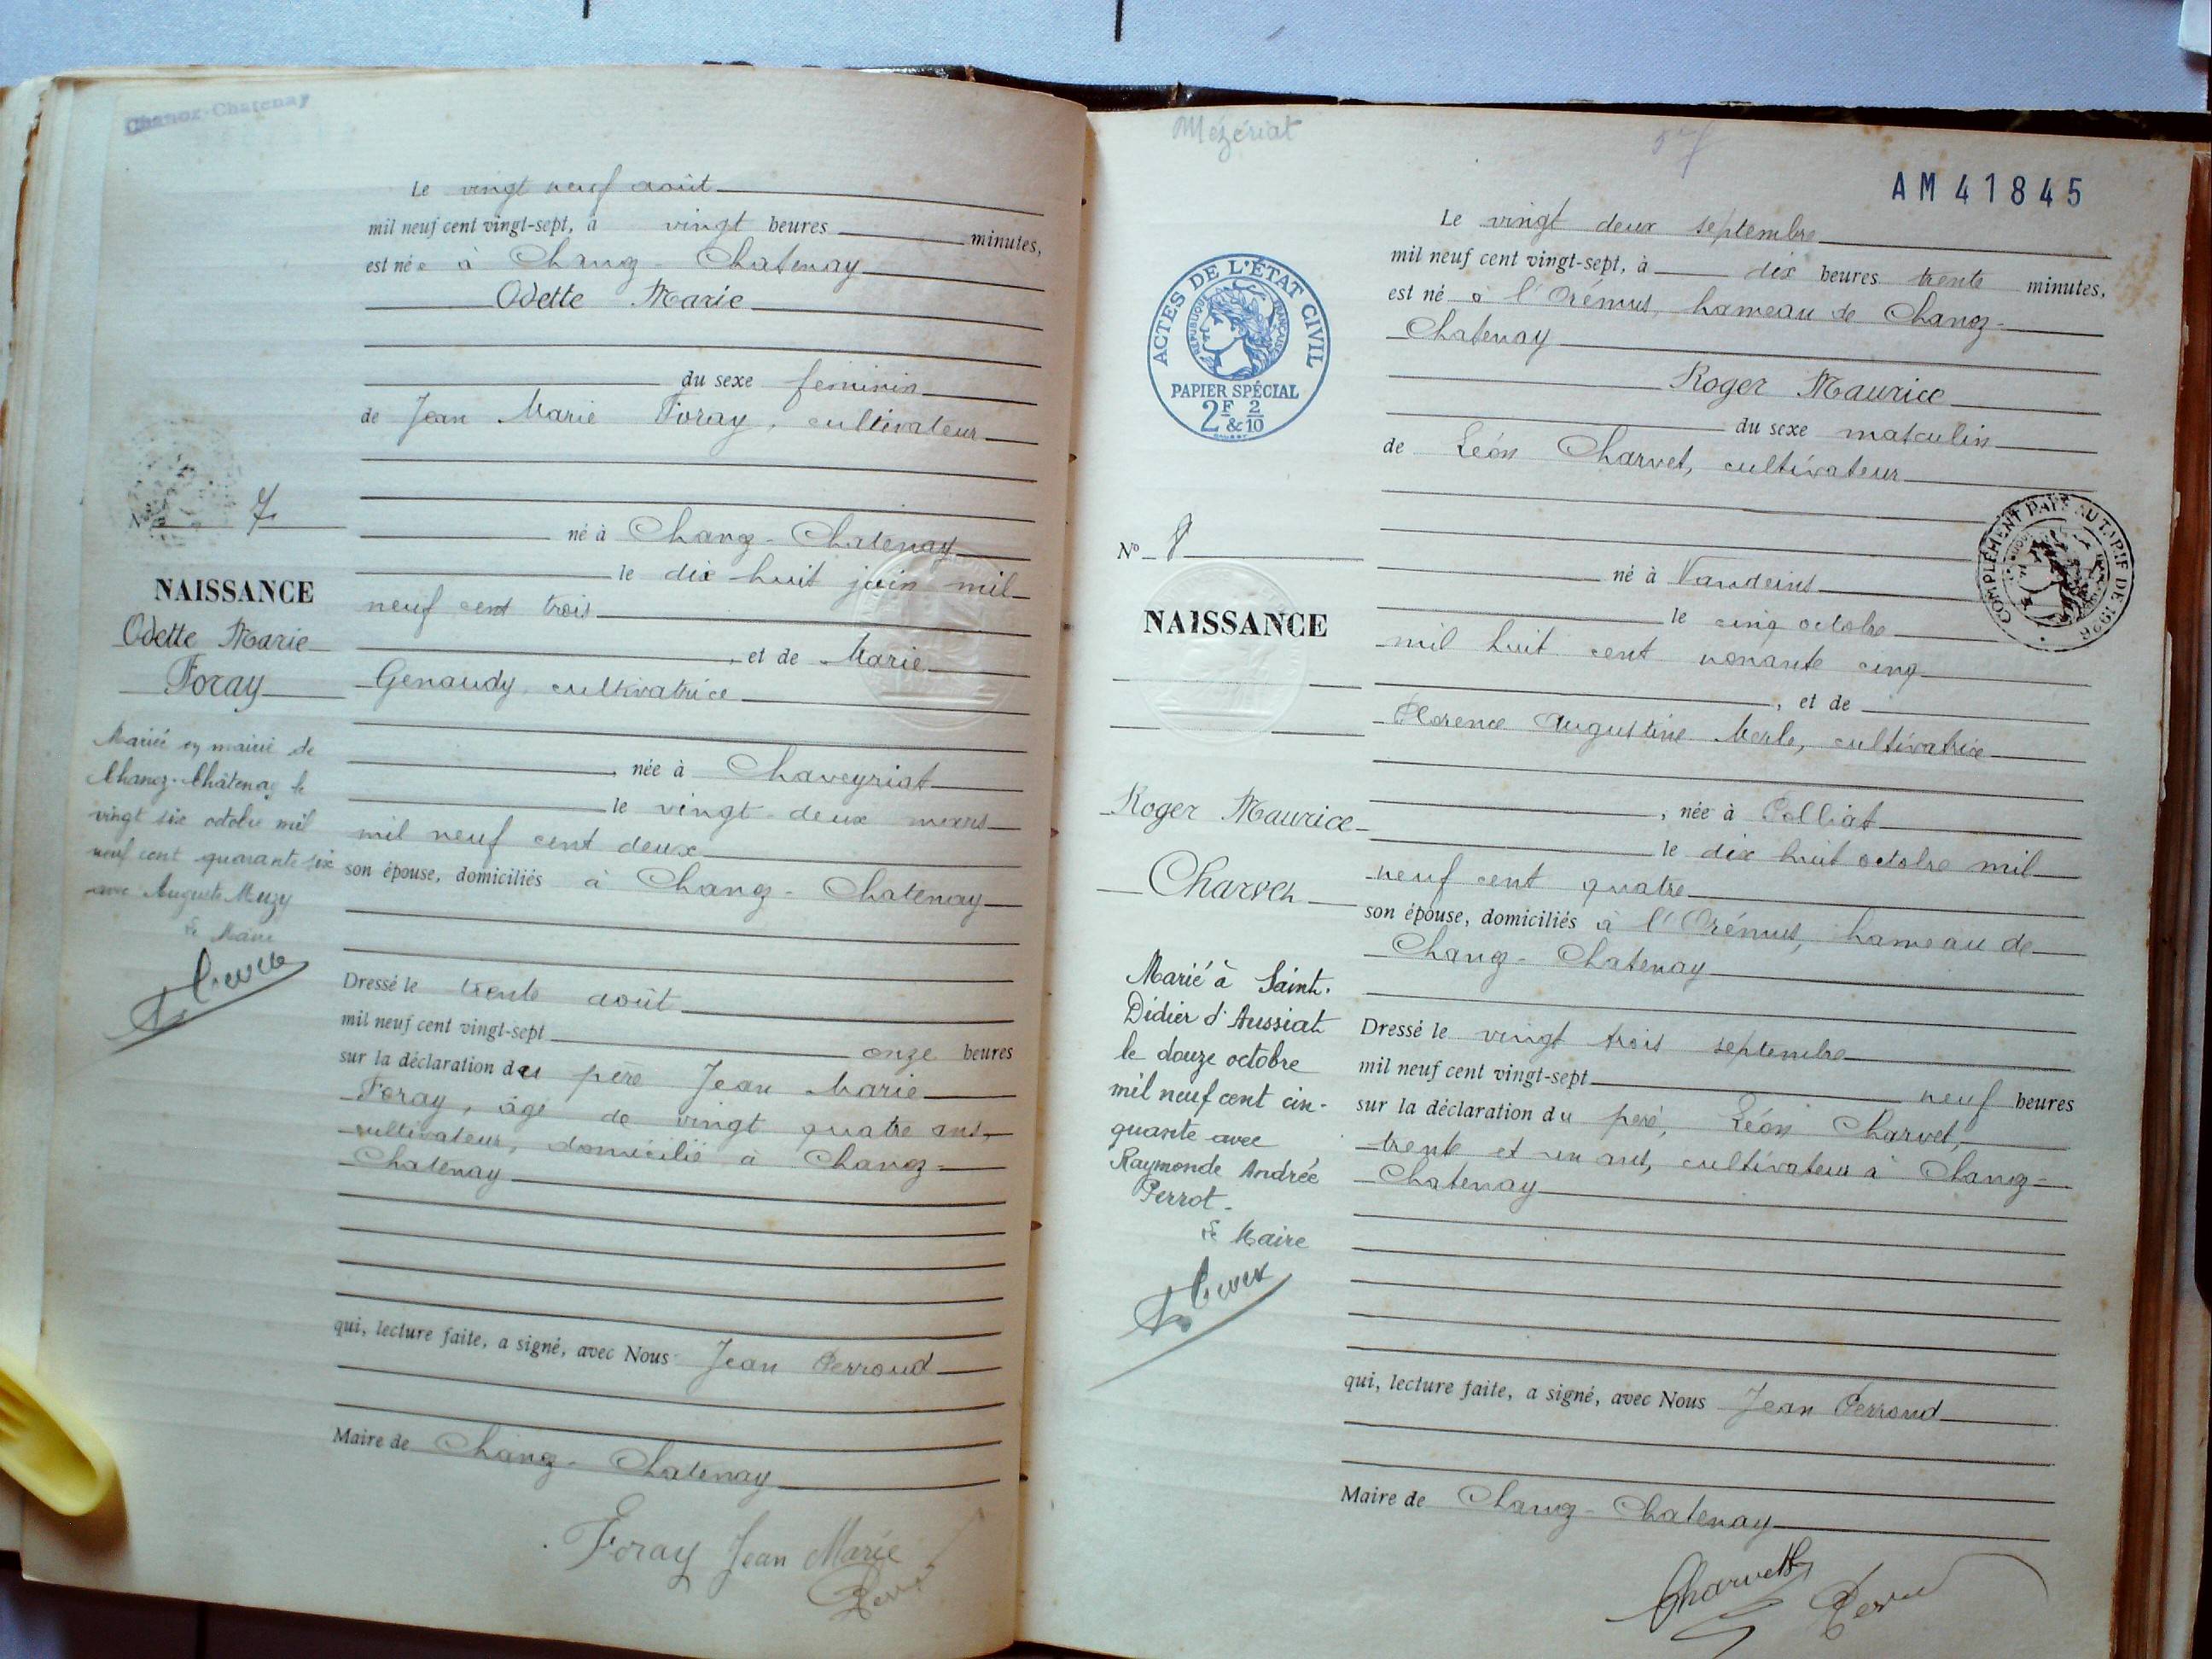 Chanoz-Chatenay
Le vingt neuf août
mil neuf cent vingt-sept, à vingt heures minutes,
est née à Chanoz - Chatenay
Odette Marie
du sexe féminin
de Jean Marie Foray, cultivateur
né à Chanoz - Chatenay
le dix huit juin mil
neuf cent trois
, et de Marie
Genaudy, cultivatrice
, née à Chaveyriat
le vingt-deux mars
mil neuf cent deux
son épouse, domiciliés à Chanoz - Chatenay
Dressé le trente août
mil neuf cent vingt-sept onze heures
sur la déclaration du père Jean Marie
Foray, âgé de vingt quatre ans,
cultivateur, domicilié à Chanoz-
Chatenay
qui, lecture faite, a signé, avec Nous Jean Perroud
Maire de Chanoz - Chatenay
Foray Jean Marie
N° 7
NAISSANCE
Odette Marie
Foray
Mariée en mairie de
Chanoz-Châtenay le
vingt six octobre mil
neuf cent quarante six
avec Auguste Muzy
Le Maire
Mézériat
AM41845
Le vingt deux septembre
mil neuf cent vingt-sept, à dix heures trente minutes,
est né à l'Orémus, hameau de Chanoz-
Chatenay
Roger Maurice
du sexe masculin
de Léon Charvet, cultivateur
né à Vandeins
le cinq octobre
mil huit cent nonante cinq
, et de
Clorence Augustine Merle, cultivatrice
, née à Polliat
le dix huit octobre mil
neuf cent quatre
son épouse, domiciliés à l'Orémus, hameau de
Chanoz - Chatenay
Dressé le vingt trois septembre
mil neuf cent vingt-sept neuf heures
sur la déclaration du père, Léon Charvet,
trente et un ans, cultivateur à Chanoz-
Chatenay
qui, lecture faite, a signé, avec Nous Jean Perroud
Maire de Chanoz - Chatenay
Charvet
ACTES DE L'ÉTAT CIVIL
RÉPUBLIQUE FRANÇAISE
PAPIER SPÉCIAL
2F & 2/10
COMPLÉMENT PAYÉ AU TARIF DE 1926
N° 8
NAISSANCE
Roger Maurice
Charvet
Marié à Saint-
Didier d'Aussiat
le douze octobre
mil neuf cent cin-
quante avec
Raymonde Andrée
Perrot.
Le Maire